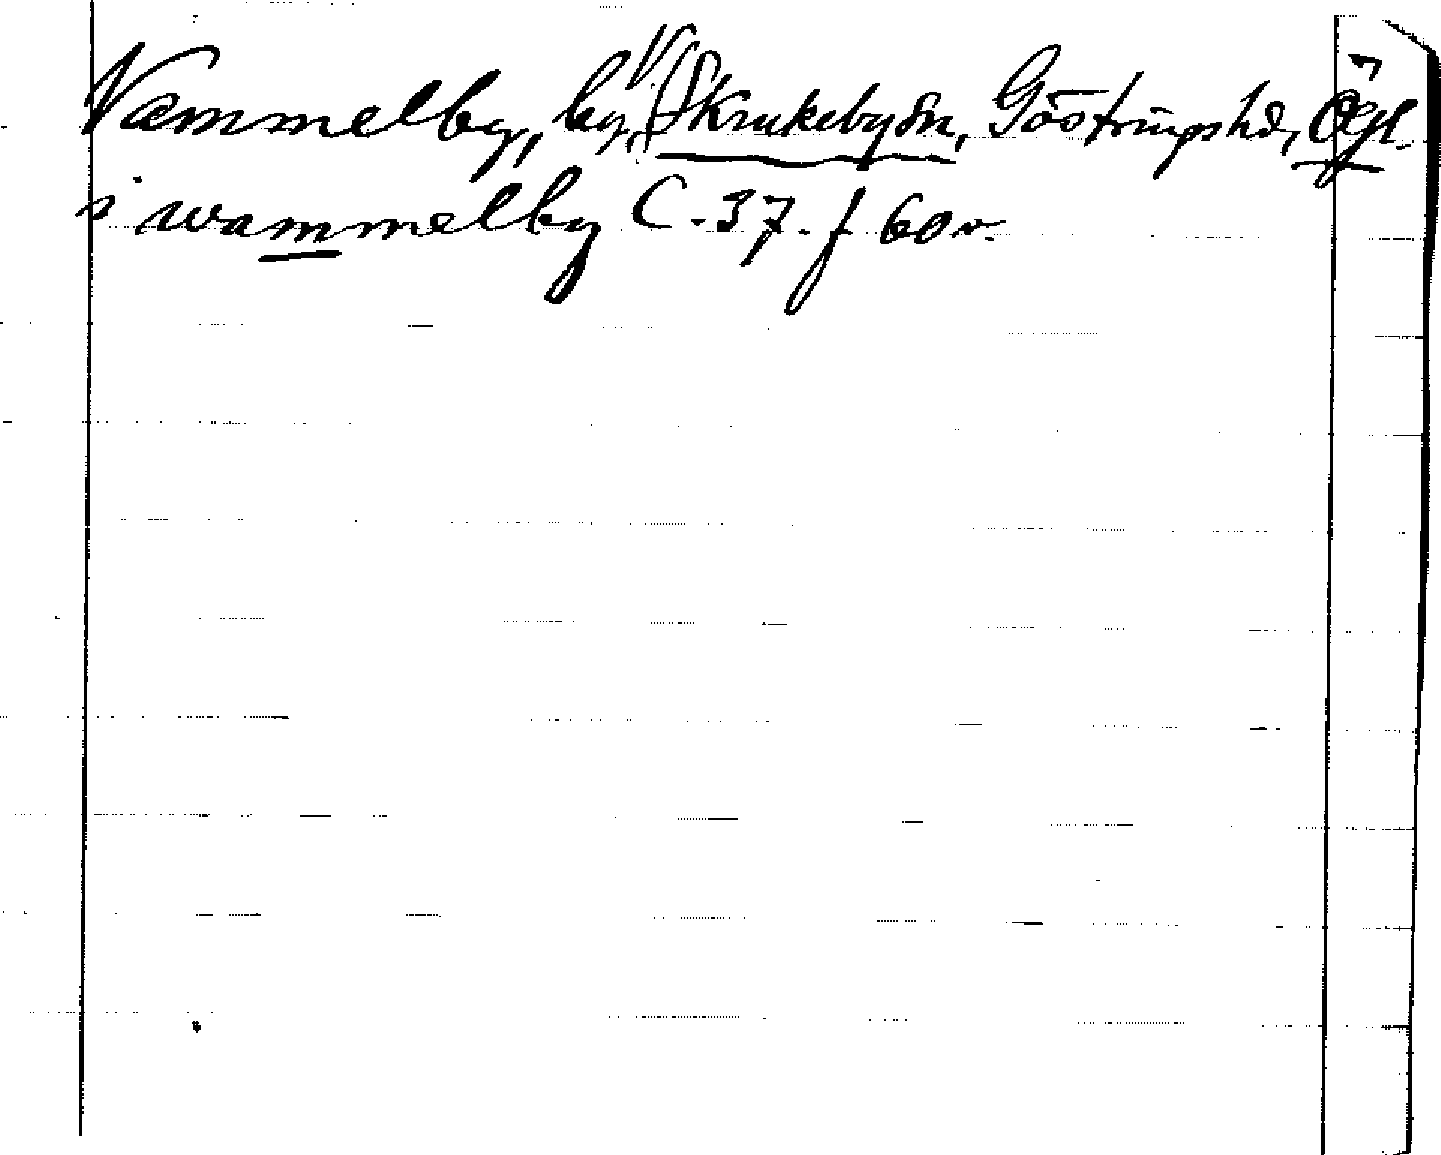 Vammelby, by, V. Skrukeby sn, Göstringshd, Ögl.
i wammelby C. 37. f 60 v.